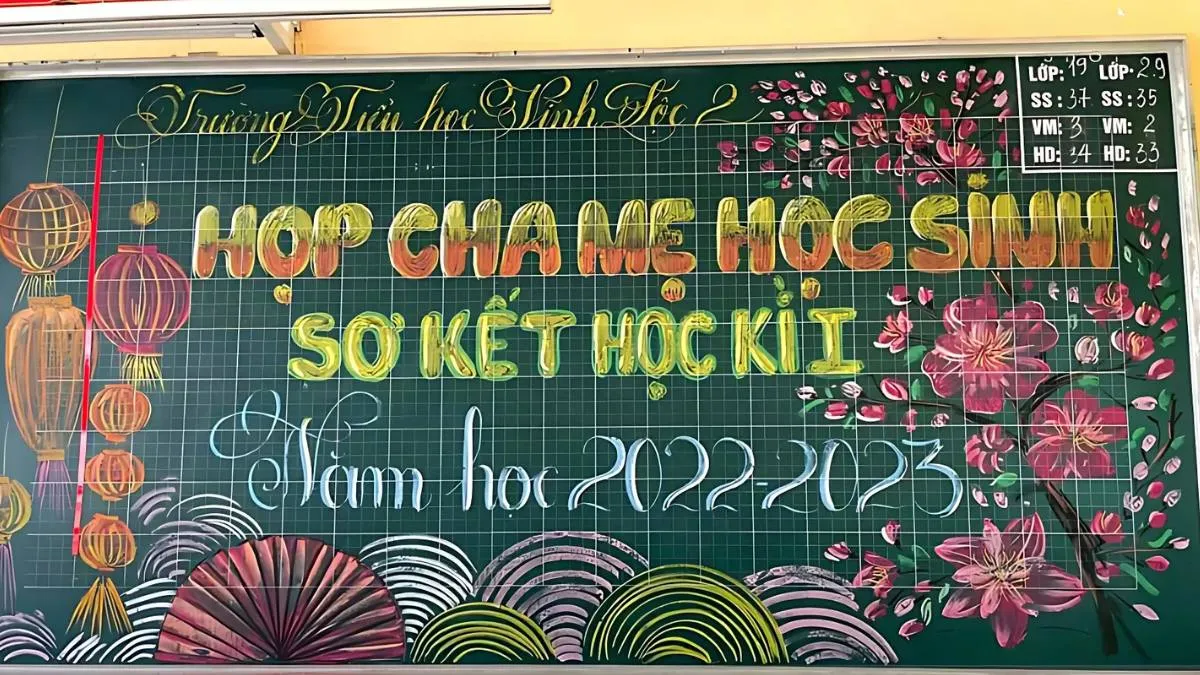 Trường Tiểu học Vĩnh Lộc 2
LỚP: 19 LỚP: 2.9
SS: 37 SS: 35
VM: 3 VM: 2
HD: 34 HD: 33
HỌP CHA MẸ HỌC SINH
SƠ KẾT HỌC KÌ I
Năm học 2022-2023